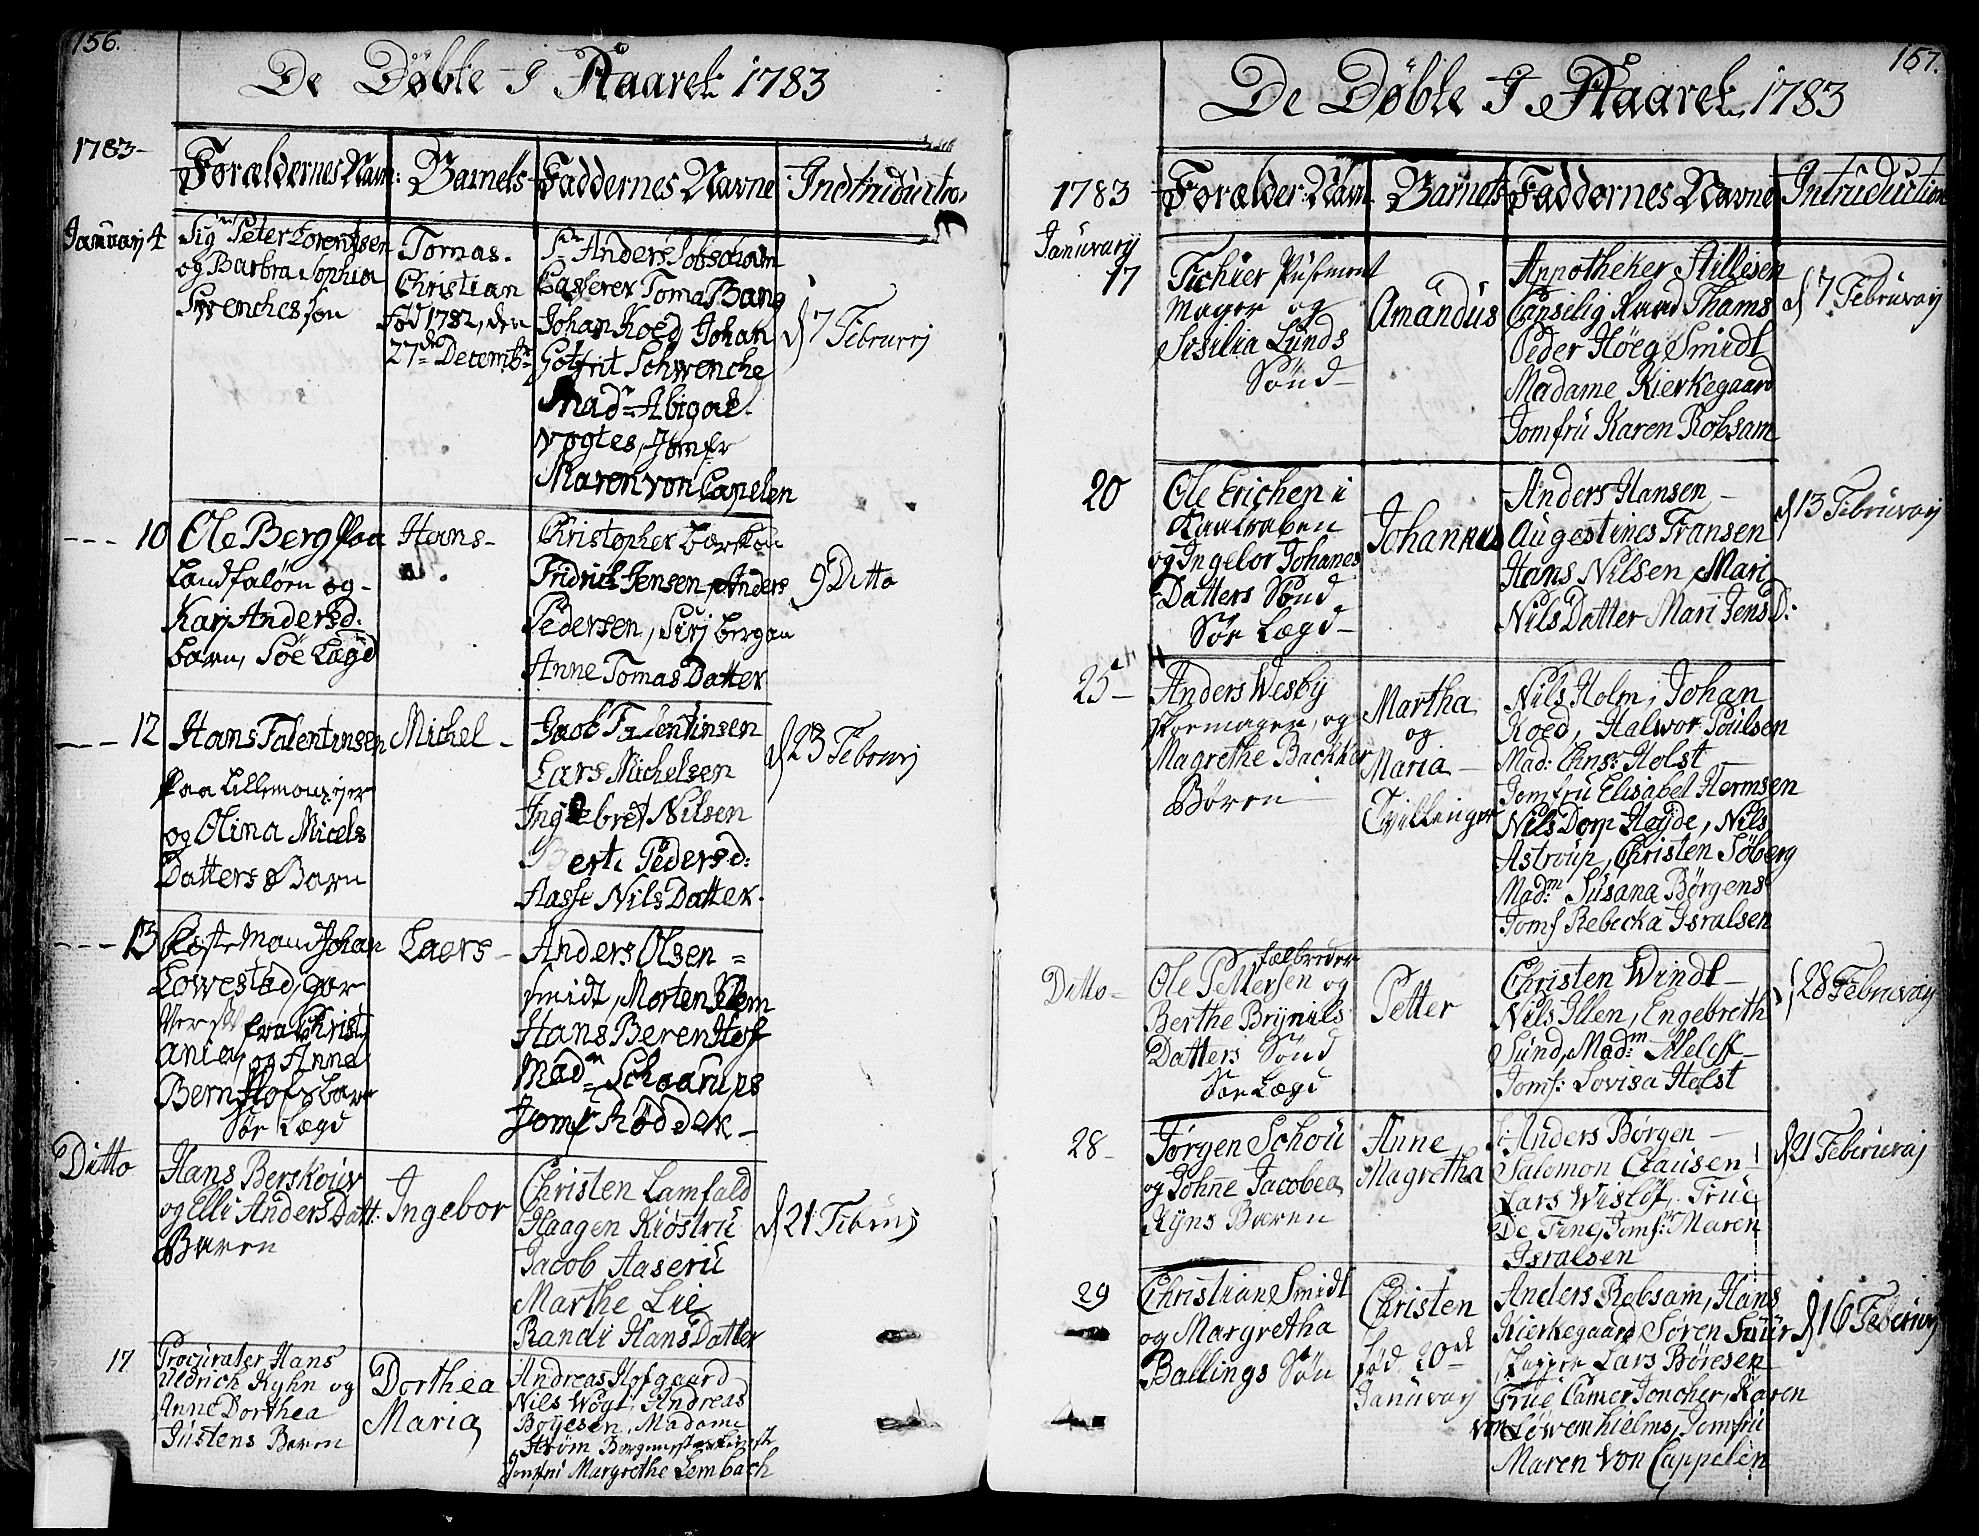 156.
De Døbte I Aaret 1783
1783-
Forældernes Navn: Barnets Faddernes Navne Indtriduction
Januarj 4
Sigr Peter Lorentsen
og Barbra Sophia
Svenches søn
Tomas.
Christian
Fød 1782, den
27de Decembr
Sr Anders Robsdam
Casserer Toma Bang
Johan Koed Johan
Gotfrit Schwenche
Madm Abigael
Vogtes, Jomfr
Maren von Capelen
d 7 Februrj
10
Ole Berg Paa
Landfaløen og-
Karj Andersd:
barn, Søe Lægd
Hans-
Christopher Børskou
Fridrich Jensen Anders
Pedersen, Sirj bergan
Anne Tomas Datter
9 Ditto
12
Hans Falentinsen
Paa Lillemoursjer
og Olina Micels
Datters Barn
Michel-
Jacob Falentinsen
Lars Michelsen
Ingebret Nilsen
Berte Pedersd:
Aasse Nils Datter.
d 23 Februrj
13
Johan
Lowestad, gar
Ver fra Christj
ania, og Anna
Bern Hofs bare
Sør Lægd
Laers-
Anders Olsen =
Smidt, Morten Klem
Hans Beren Hof
Madm Schaarups
Jomf Røddek-
Ditto
Hans Berskouv
og Elli Anders Datt:
Baren
Ingebor
Christen Lamfald
Haagen Kiøstru
Jacob Aaseru
Marthe Lie
Randi Hans Datter
d 21 Februrj
17
Procurater Hans
Uldrich Kyhn og
Anne Dorthea
Justens Baren
Dorthea
Maria
Andreas Hofgaard
Nils Wogt, Andreas
Boyesen, Madame
Strøm
Jomfru Margrethe Lembach
157.
De Døbte I Aaret 1783
1783 Forælder: Navn Barnets Faddernes Navne Intruduction
Januvarij
17
Fichier Pusment
Mager og
Sisilia Lunds
Sønd-
Amandus
Appotheker Stillesen
Canselig Raad Thams
Peder Høeg Smidt
Madame Kierkegaard
Jomfru Karen Robsam
d 7 Februvarj
20
Ole Erichen i
og Ingebor Johanes
Datters Sønd
Sør Lægd-
Johannes
Anders Hansen-
Augestines Fransen
Hans Nilsen Mari
Nils Datter Mari Jens D:
d 13 Februvarj
25-
Anders Wesby
Skoemager, og
Magrethe Backker
Børen-
Martha
og
Maria-
Tvillinger
Nils Holm, Johan
Koed, Halwor Poulsen
Mad: Chns: Holst
Jomfru Elisabet Hermsen
Nils Dorp Høyde, Nils
Astrup, Christen Søberg
Madm Susana Børgens
Jomf Rebecka Israelsen
Ditto-
Ole Pettersen og
Berthe Brynils
Datters Sønd
Sør Lægd
Petter
Christen Windt-
Nils Illen, Engebreth
Sund, Madm Meleff-
Jomf: Lovisa Holst
d 28 Februvarj
28-
Jørgen Schou
og Johne Jacobea
Kyns Baren
Anne
Magretha
Anders Børgen-
Salomon Clausen-
Lars Wisløf, True
De Fine, Jomfr Maren
Isralsen
d 21 Februvarj
29
Christian Smidt
og Margretha
Ballings Søn
Christen
Fød 20de
Januvarj
Anders Robsam, Hans
Kierkegaard, Søren Fuur
Skipper Lars Børesen
Frue Camer Joncher, Karen
von Løwenhielms, Jomfru
Maren von Cappelen
d 16 Februvarj